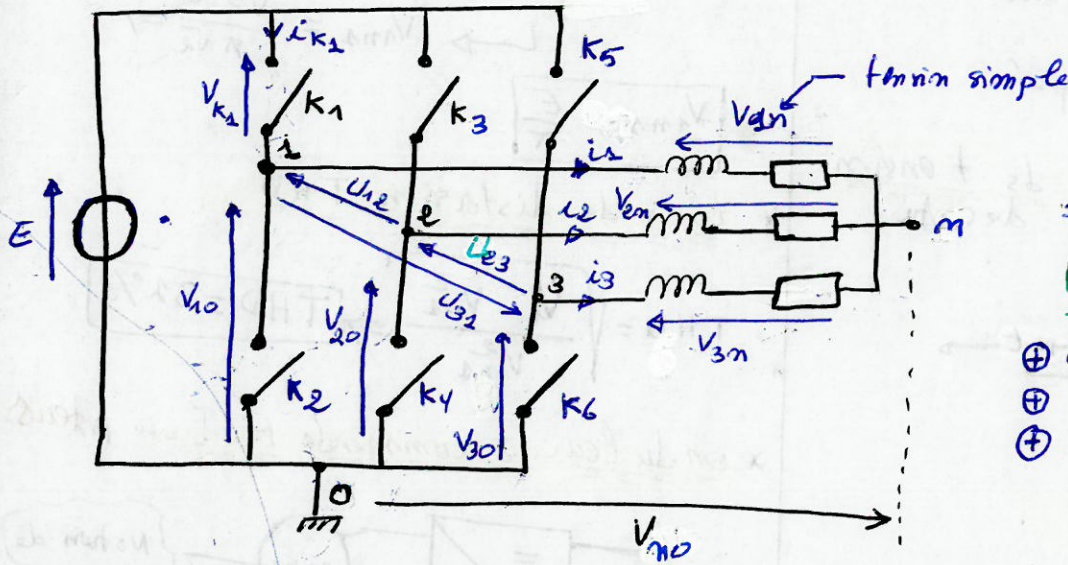 iK1
K5
VK1
K1
K3
tension simple
V1n
1
i1
U12
2
V2n
i2
n
E
U23
3
i3
V10
U31
V20
V3n
K2
K4
V30
K6
0
Vno